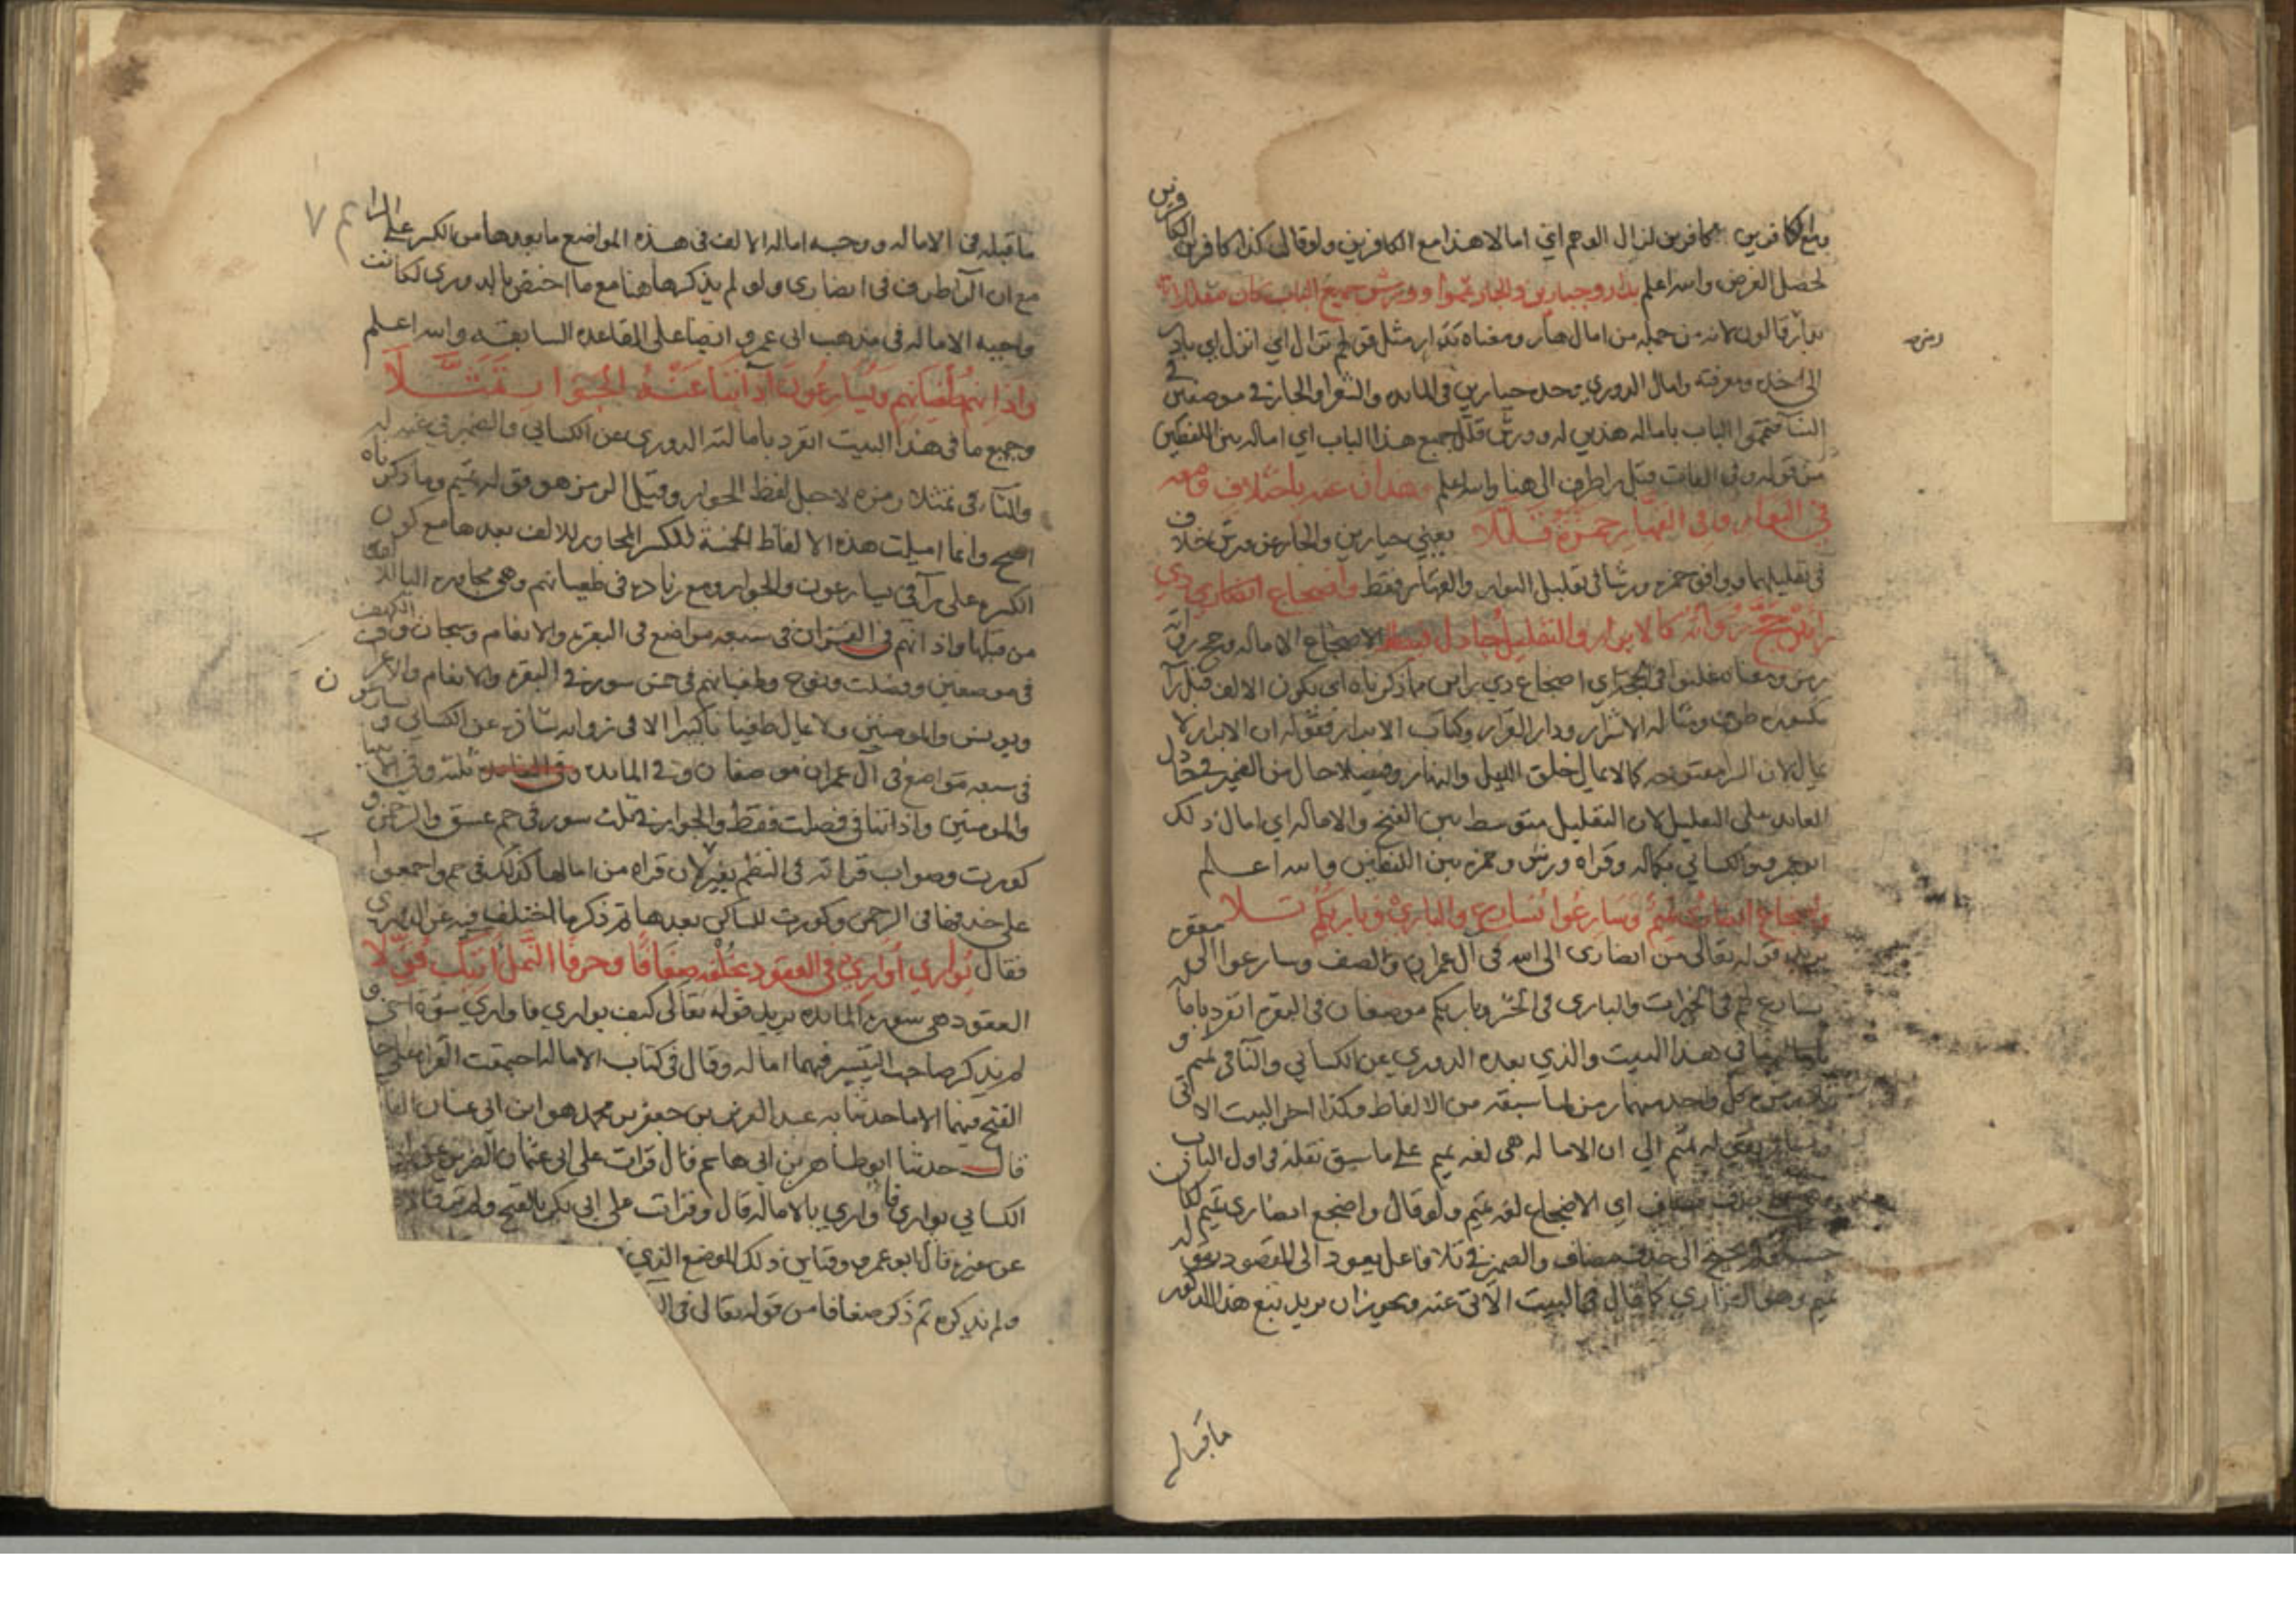 ومع الكافرين بكافرين لزال الوهم اي امالا هذا مع الكافرين ولو قال كذا كافرين الكافرين
لحصل الغرض والله اعلم بدار وجبارين والجار تمموا وورش جميع الباب كان مقللا
بدار قالون لانه من جملة من امال هار ومعناه بدار مثل قولهم نزال اي انزل اي بادر
رمزه
الى اخذه ومعرفته وامال الدوري وحده جبارين في المايده والشعرا والجار في موضعين في
النسا فتمموا الباب بامالة هذين له وورش قلل جميع هذا الباب اي اماله بين اللفظين
من قوله وفي الفات قبل را طرف الى هنا والله اعلم وهذان عنه باختلاف ومعه
في البوار وفي القهار حمزة قللا يعني جبارين والجار عن ورش خلاف
في تقليلهما ووافق حمزه ورشا في تقليل البوار والقهار فقط واضجاع ذي
رائين حج رواته كالابرار والتقليل جادل فيصلا الاضجاع الاماله وحج
رمز ومعناه غلبوا في الحجة اي اضجاع ذي رائين ما ذكرناه اي يكون الالف قبل را
مكسوره طرف ومثاله الاشرار ودار القرار وكتاب الابرار فقوله ان الابرار لا
يمال لان الرا مفتوحه كما لا يمال خلق الليل والنهار وفيصلا حال من الضمير في جادل
العايد على التقليل لان التقليل متوسط بين الفتح والاماله اي امال ذلك
ابو عمرو والكسائي بكماله وقراه ورش وحمزه بين اللفظين والله اعلم
واضجاع انصاري تميم وسارعوا نسارع والباري وباريكم تلا
يريد قوله تعالى من انصاري الى الله في ال عمران والصف وسارعوا الى مغفره
نسارع لهم في الخيرات والباري في الحشر وباريكم موضعان في البقره انفرد
ما في هذا البيت والذي بعده الدوري عن الكسائي والتا في تميم و
كل واحد منهما رمز لما سبقه من الالفاظ وكذا اخر البيت الاتي
بقوله تميم الى ان الاماله هي لغة تميم على ما سبق نقله في اول الباب
حذف مضاف اي الاضجاع لغة تميم ولو قال واضجع انصاري تميم لكان
الى حذف مضاف والضمير في تلا فاعل يعود الى المقصود بقوله
تميم وهو القاري كما قال في البيت الاتي عنه ويجوز ان يريد تبع هذا المذكور
ما قبله
ما قبله في الاماله ووجه امالة الالف في هذه المواضع ما بعدها من الكسر على الرا
مع ان الرا طرف في انصاري ولو لم يذكرها هنا مع ما اختص بالدوري لكانت
واجبة الاماله في مذهب ابي عمرو ايضا على القاعده السابقه والله اعلم
واذانهم طغيانهم ويسارعون اذاننا عنه الجوار تمثلا
وجميع ما في هذا البيت انفرد بامالته الدوري عن الكسائي والضمير في عنه له
والتا في تمثلا رمزه لاجل لفظ الجوار وقيل الرمز هو قوله تميم وما ذكرناه
اصح وانما اميلت هذه الالفاظ الخمسة للكسر المجاور للالف بعدها مع كون
الكسره على را في يسارعون والجوار ومع زياده في طغيانهم وهي مجاورة اليا للالف
من قبلها واذانهم في القران في سبعة مواضع في البقره والانعام وسبحان وفي الكهف
في موضعين وفصلت ونوح وطغيانهم في خمس سور في البقره والانعام والاعراف
ويونس والمومنين ولا يمال طغيانا كبيرا الا في رواية شاذه عن الكسائي ويسارعون
في سبعة مواضع في ال عمران موضعان وفي المايده ثلثه وفي الانبيا
والمومنين واذاننا في فصلت فقط والجوار في ثلث سور في حم عسق والرحمن و
كورت وصواب قراته في النظم بغير يا لان قراة من امالها كذلك في حم واجمعوا
على حذفها في الرحمن وكورت للساكن بعدها ثم ذكر ما اختلف فيه عن الدوري
فقال يواري اواري في العقود بخلفه ضعافا وحرفا النمل اتيك قولا
العقود هي سورة المايده يريد قوله تعالى كيف يواري فاواري سوءة اخي و
لم يذكر صاحب التيسير فيهما اماله وقال في كتاب الاماله اجمعت القرا على
الفتح فيهما الا ما حدثنا به عبد العزيز بن جعفر بن محمد هو ابن ابي غسان
قال حدثنا ابو طاهر بن ابي هاشم قال قرات على ابي عثمان الضرير عن
الكسائي يواري فاواري بالاماله قال وقرات على ابي بكر بالفتح ولم
عن غيره قال ابو عمرو وقياس ذلك الموضع الذي
ولم يذكره ثم ذكر ضعافا من قوله تعالى في